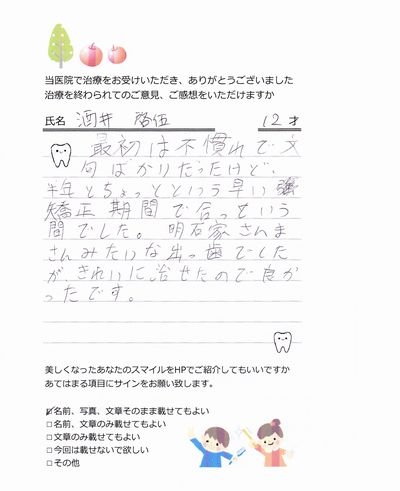 当医院で治療をお受けいただき、ありがとうございました
治療を終わられてのご意見、ご感想をいただけますか
氏名 酒井 啓伍 12才
最初は不慣れで文
句ばかりだったけど、
半年とちょっとという早い
矯正期間で合っという
間でした。明石家さんま
さんみたいな出っ歯でした
が、きれいに治せたので良か
ったです。
美しくなったあなたのスマイルをHPでご紹介してもいいですか
あてはまる項目にサインをお願い致します。
☑名前、写真、文章そのまま載せてもよい
□名前、文章のみ載せてもよい
□文章のみ載せてもよい
□今回は載せないで欲しい
□その他